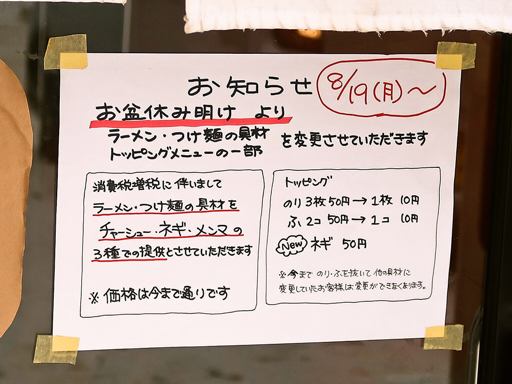 お知らせ
8/19(月)～
お盆休み明け より
ラーメン・つけ麺の具材
トッピングメニューの一部
を変更させていただきます
消費税増税に伴いまして
ラーメン・つけ麺の具材を
チャーシュー・ネギ・メンマの
3種での提供とさせていただきます
※ 価格は今まで通りです
トッピング
のり 3枚 50円→1枚 10円
ふ 2コ 50円→1コ 10円
New ネギ 50円
※今まで のり・ふを抜いて 他の具材に
変更していたお客様は変更ができなくなります。